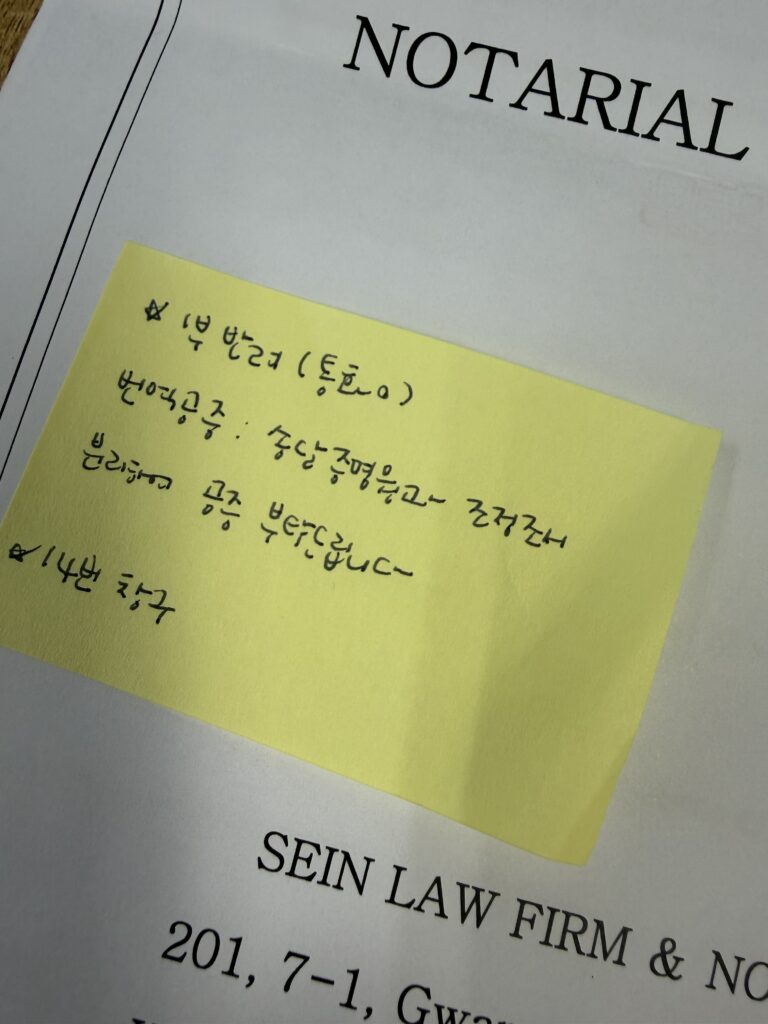 NOTARIAL
☆ 1부 반려 (동효이)
번역공증 : 송달증명원과 조정조서
분리하여 공증 부탁드립니다
☆ 14번 창구
SEIN LAW FIRM & NO
201, 7-1, Gwa